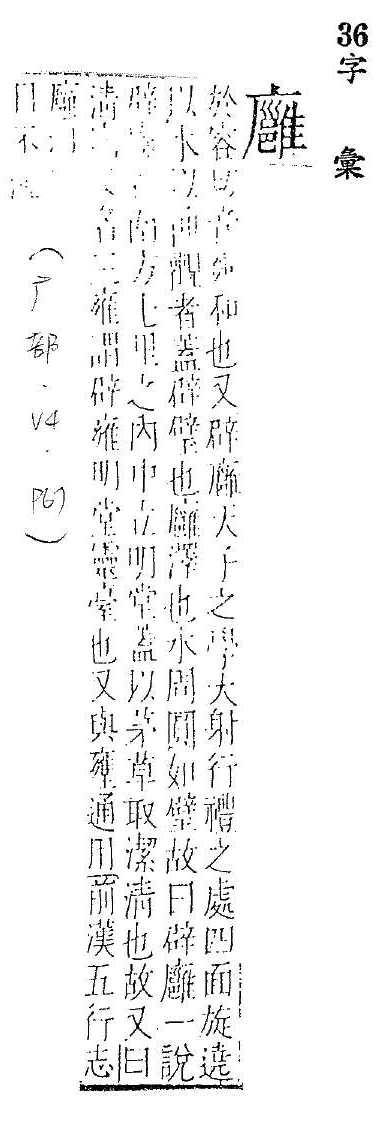 36
字彙
廱
於容切音雍和也又辟廱天子之學大射行禮之處四面旋遶
以水以而觀者蓋辟璧也廱澤也水周圓如璧故曰辟廱一說
辟南方七里之內中立明堂蓋以茅草取潔清也故又曰
清名三雍謂辟雍明堂靈臺也又與雍通用前漢五行志
廱
日不
(广部.V4.P67)